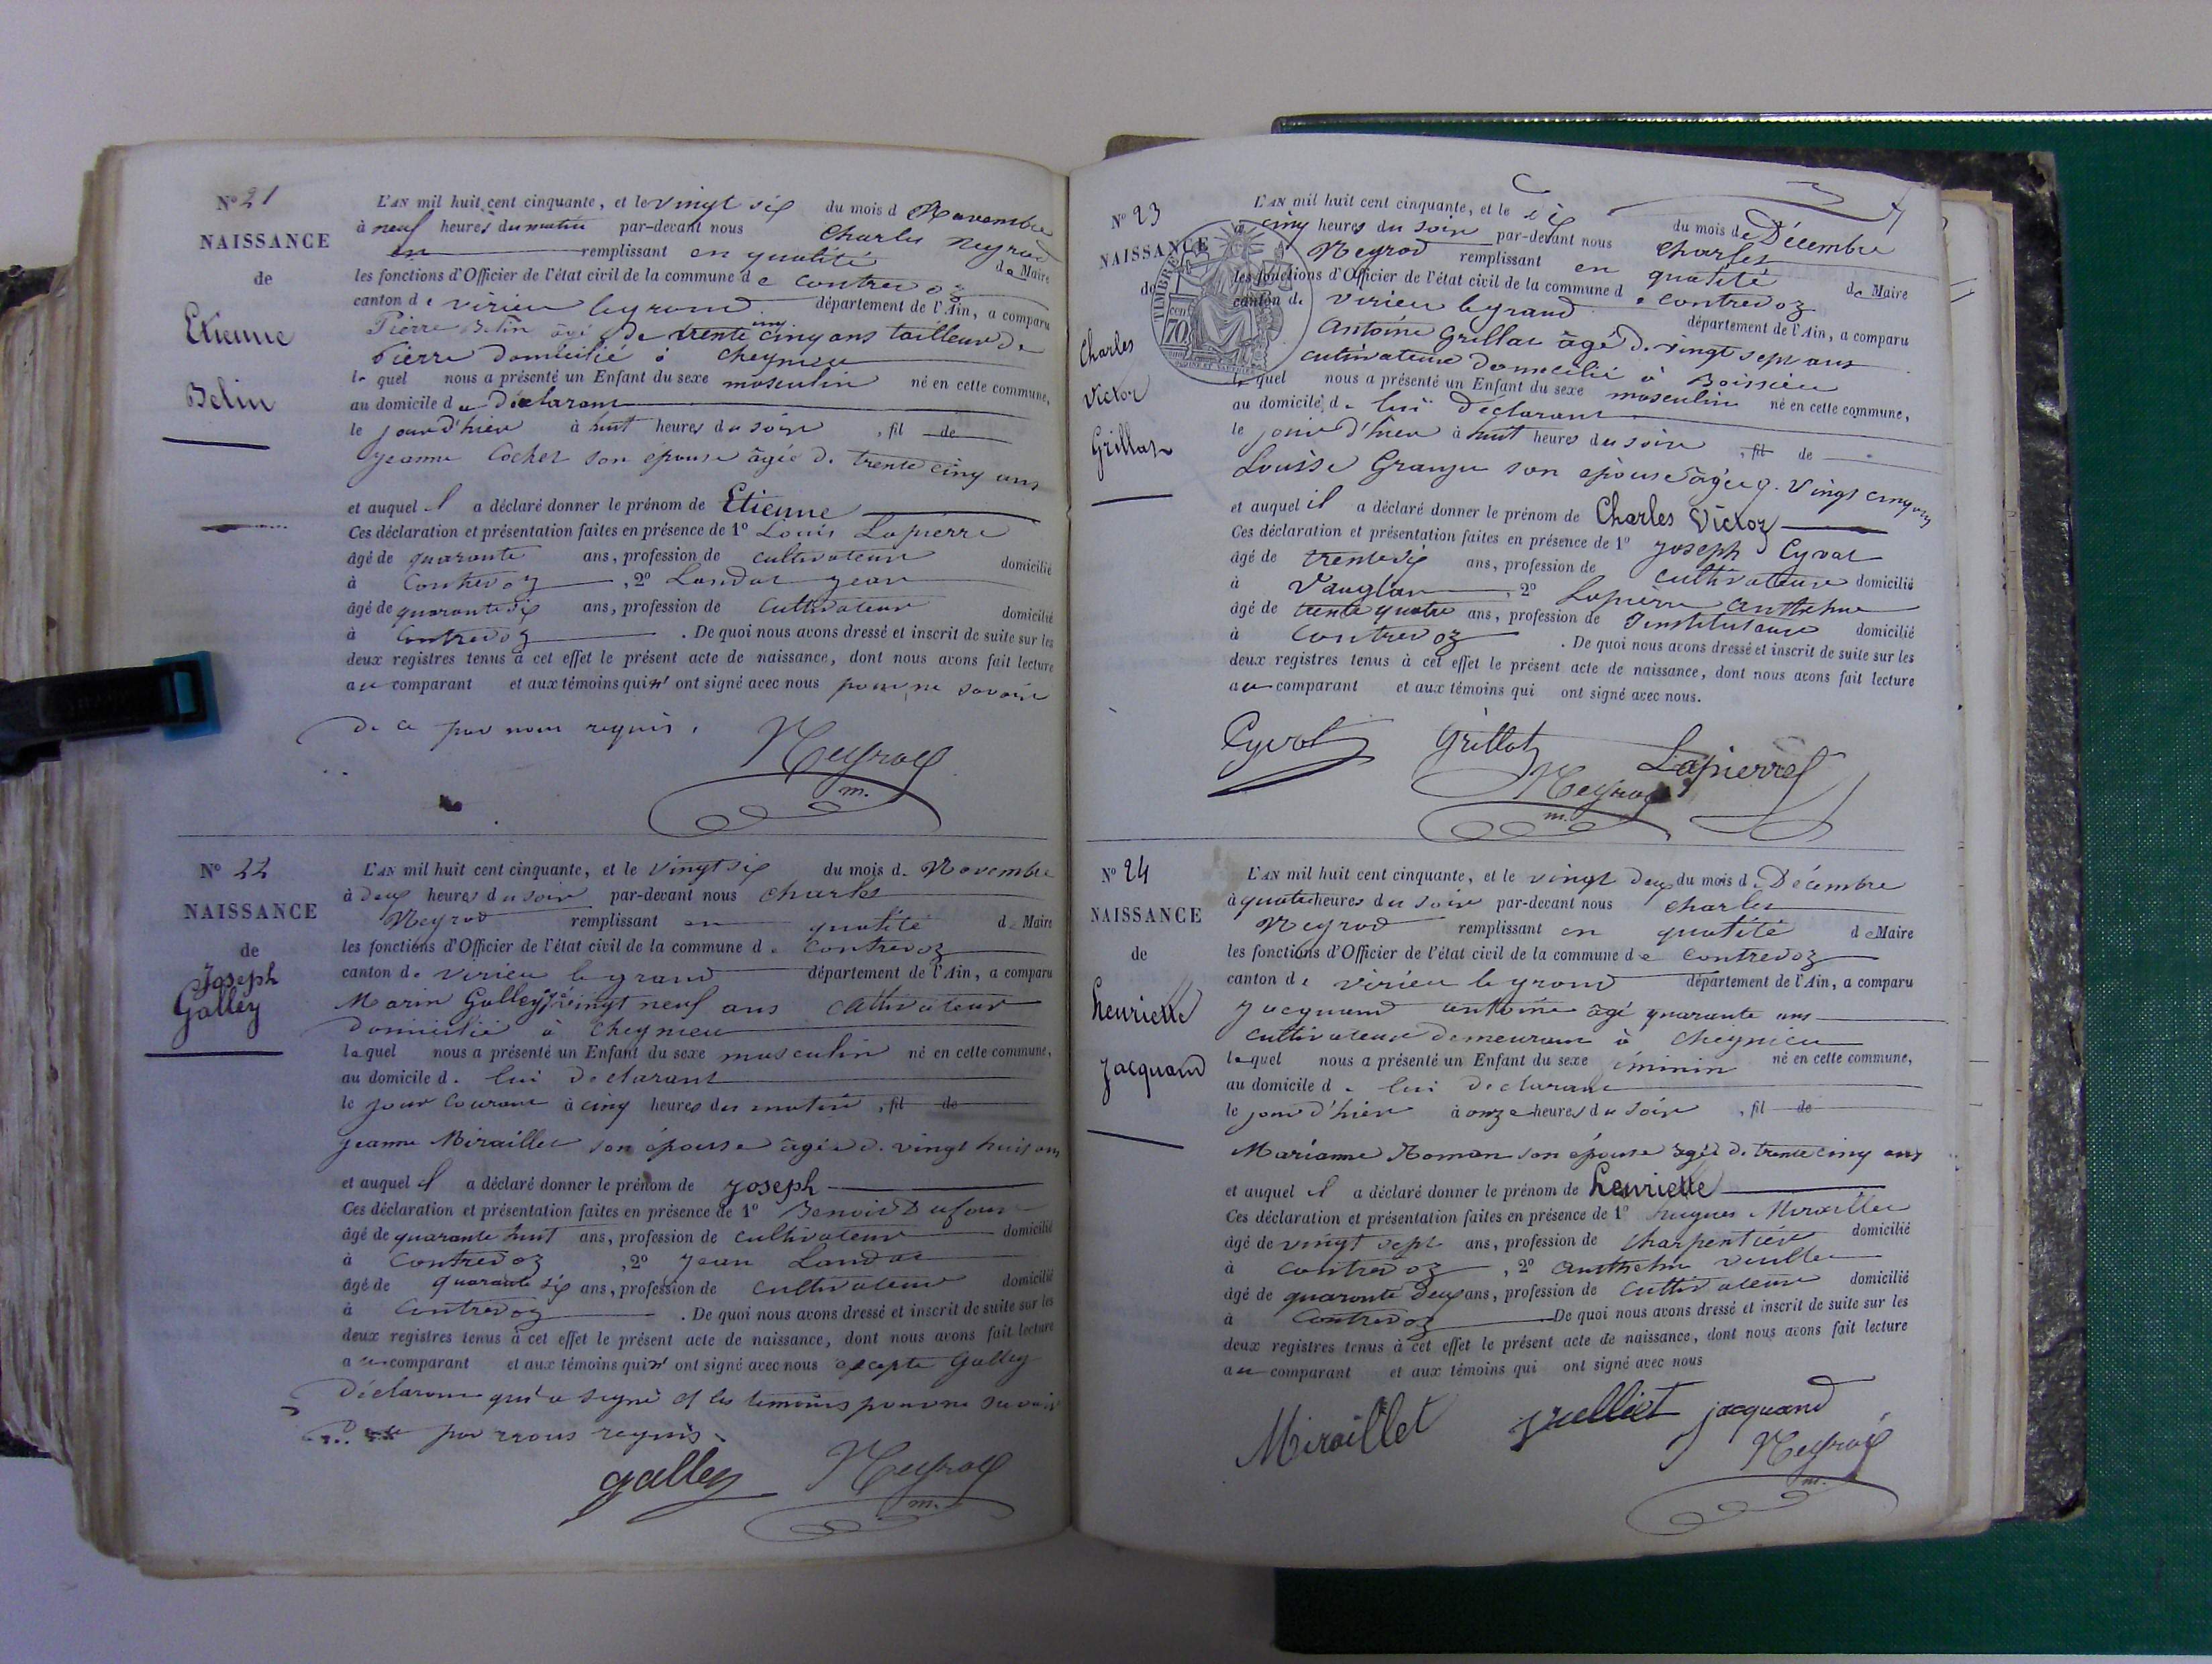 N° 21
NAISSANCE
de
Etienne
Belin
L'AN mil huit cent cinquante, et le vingt six du mois d Novembre
à neuf heures du matin par-devant nous Charles Neyrod
en remplissant en qualité de Maire
les fonctions d'Officier de l'état civil de la commune de Contrevoz
canton de virieu le grand département de l'Ain, a comparu
Pierre Belin âgé de trente cinq ans tailleur de
Pierre domicilié à Cheignieu
lequel nous a présenté un Enfant du sexe masculin né en cette commune,
au domicile du Déclarant
le jour d'hier à huit heures du soir, fil de
jeanne Cochet son épouse âgée de trente cinq ans
et auquel il a déclaré donner le prénom de Etienne
Ces déclaration et présentation faites en présence de 1° Louis Lapierre
âgé de quarante ans, profession de cultivateur domicilié
à Contrevoz, 2° Landar jean
âgé de quarante six ans, profession de cultivateur domicilié
à Contrevoz. De quoi nous avons dressé et inscrit de suite sur les
deux registres tenus à cet effet le présent acte de naissance, dont nous avons fait lecture
au comparant et aux témoins qui n' ont signé avec nous pour ne savoir
de ce par nous requis.
Neyrod
m.
N° 22
NAISSANCE
de
Joseph
Galley
L'AN mil huit cent cinquante, et le vingt six du mois de Novembre
à deux heures du soir par-devant nous Charles
Neyrod remplissant en qualité de Maire
les fonctions d'Officier de l'état civil de la commune de Contrevoz
canton de virieu le grand département de l'Ain, a comparu
Marin Galley vingt neuf ans cultivateur
domicilié à Cheignieu
lequel nous a présenté un Enfant du sexe masculin né en cette commune,
au domicile de lui déclarant
le jour courant à cinq heures du matin, fil de
jeanne Miraillet son épouse âgée de vingt huit ans
et auquel il a déclaré donner le prénom de joseph
Ces déclaration et présentation faites en présence de 1° Benoit Dufour
âgé de quarante huit ans, profession de cultivateur domicilié
à Contrevoz, 2° jean Landar
âgé de quarante six ans, profession de cultivateur domicilié
à Contrevoz. De quoi nous avons dressé et inscrit de suite sur les
deux registres tenus à cet effet le présent acte de naissance, dont nous avons fait lecture
au comparant et aux témoins qui n' ont signé avec nous excepte Galley
déclarant qui a signé et les temoins pour ne savoir
par nous requis.
galley Neyrod
m.
N° 23
NAISSANCE
de
Charles
Victor
Grillat
TIMBRE
70
L'AN mil huit cent cinquante, et le six du mois de Décembre
à cinq heures du soir par-devant nous Charles
Neyrod remplissant en qualité de Maire
les fonctions d'Officier de l'état civil de la commune de Contrevoz
canton de virieu le grand département de l'Ain, a comparu
Antoine Grillat âgé de vingt sept ans
cultivateur domicilié à Boissieu
lequel nous a présenté un Enfant du sexe masculin né en cette commune,
au domicile de lui déclarant
le jour d'hier à huit heures du soir, fil de
Louise Granju son épouse âgée de vingt cinq ans
et auquel il a déclaré donner le prénom de Charles Victor
Ces déclaration et présentation faites en présence de 1° joseph Cyvot
âgé de trente six ans, profession de cultivateur domicilié
à Vauglan, 2° Lapierre Anthelme
âgé de trente quatre ans, profession de instituteur domicilié
à Contrevoz. De quoi nous avons dressé et inscrit de suite sur les
deux registres tenus à cet effet le présent acte de naissance, dont nous avons fait lecture
au comparant et aux témoins qui ont signé avec nous.
Cyvot Grillat Lapierre
Neyrod
m.
N° 24
NAISSANCE
de
henriette
jacquand
L'AN mil huit cent cinquante, et le vingt deux du mois de Décembre
à quatre heures du soir par-devant nous Charles
Neyrod remplissant en qualité de Maire
les fonctions d'Officier de l'état civil de la commune de Contrevoz
canton de virieu le grand département de l'Ain, a comparu
jacquand antoine âgé quarante ans
cultivateur demeurant à Cheignieu
lequel nous a présenté un Enfant du sexe féminin né en cette commune,
au domicile de lui déclarant
le jour d'hier à onze heures du soir, fil de
Marianne Roman son épouse âgée de trente cinq ans
et auquel il a déclaré donner le prénom de henriette
Ces déclaration et présentation faites en présence de 1° hugues Miraillet
âgé de vingt sept ans, profession de charpentier domicilié
à Contrevoz, 2° Anthelme vuillet
âgé de quarante deux ans, profession de cultivateur domicilié
à Contrevoz De quoi nous avons dressé et inscrit de suite sur les
deux registres tenus à cet effet le présent acte de naissance, dont nous avons fait lecture
au comparant et aux témoins qui ont signé avec nous
Miraillet vuilliet jacquand
Neyrod
m.